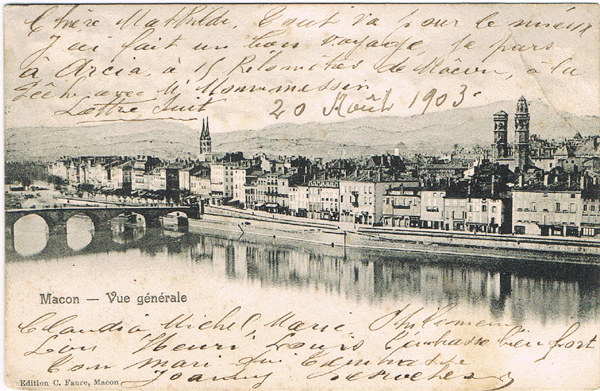 Chère Mathilde, Tout va pour le mieux
J'ai fait un bon voyage, je pars
à Arcia, à 15 Kilomètres de Mâcon, à la
avec M. Monmessin
Lettre suit 20 Août 1903
Macon — Vue générale
Claudia Michel, Marie Philomène
Henri Louis bien fort
Ton mari qui
Joanny
Edition C. Faure, Macon